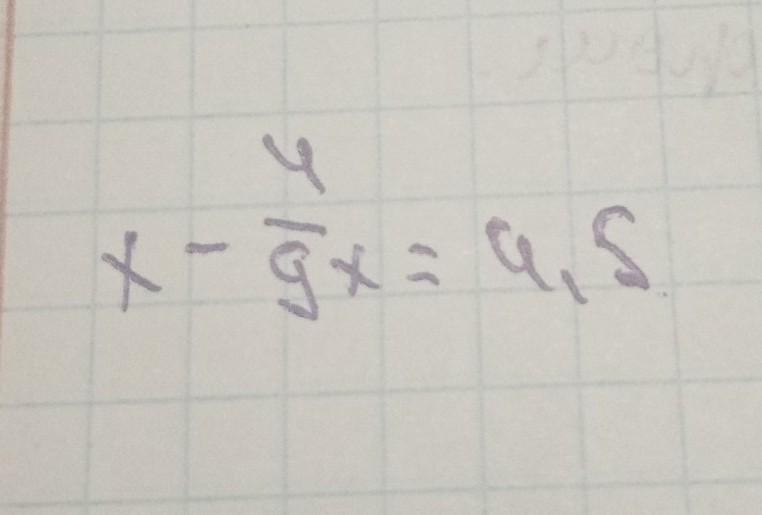 x - 4/9 x = 4,5